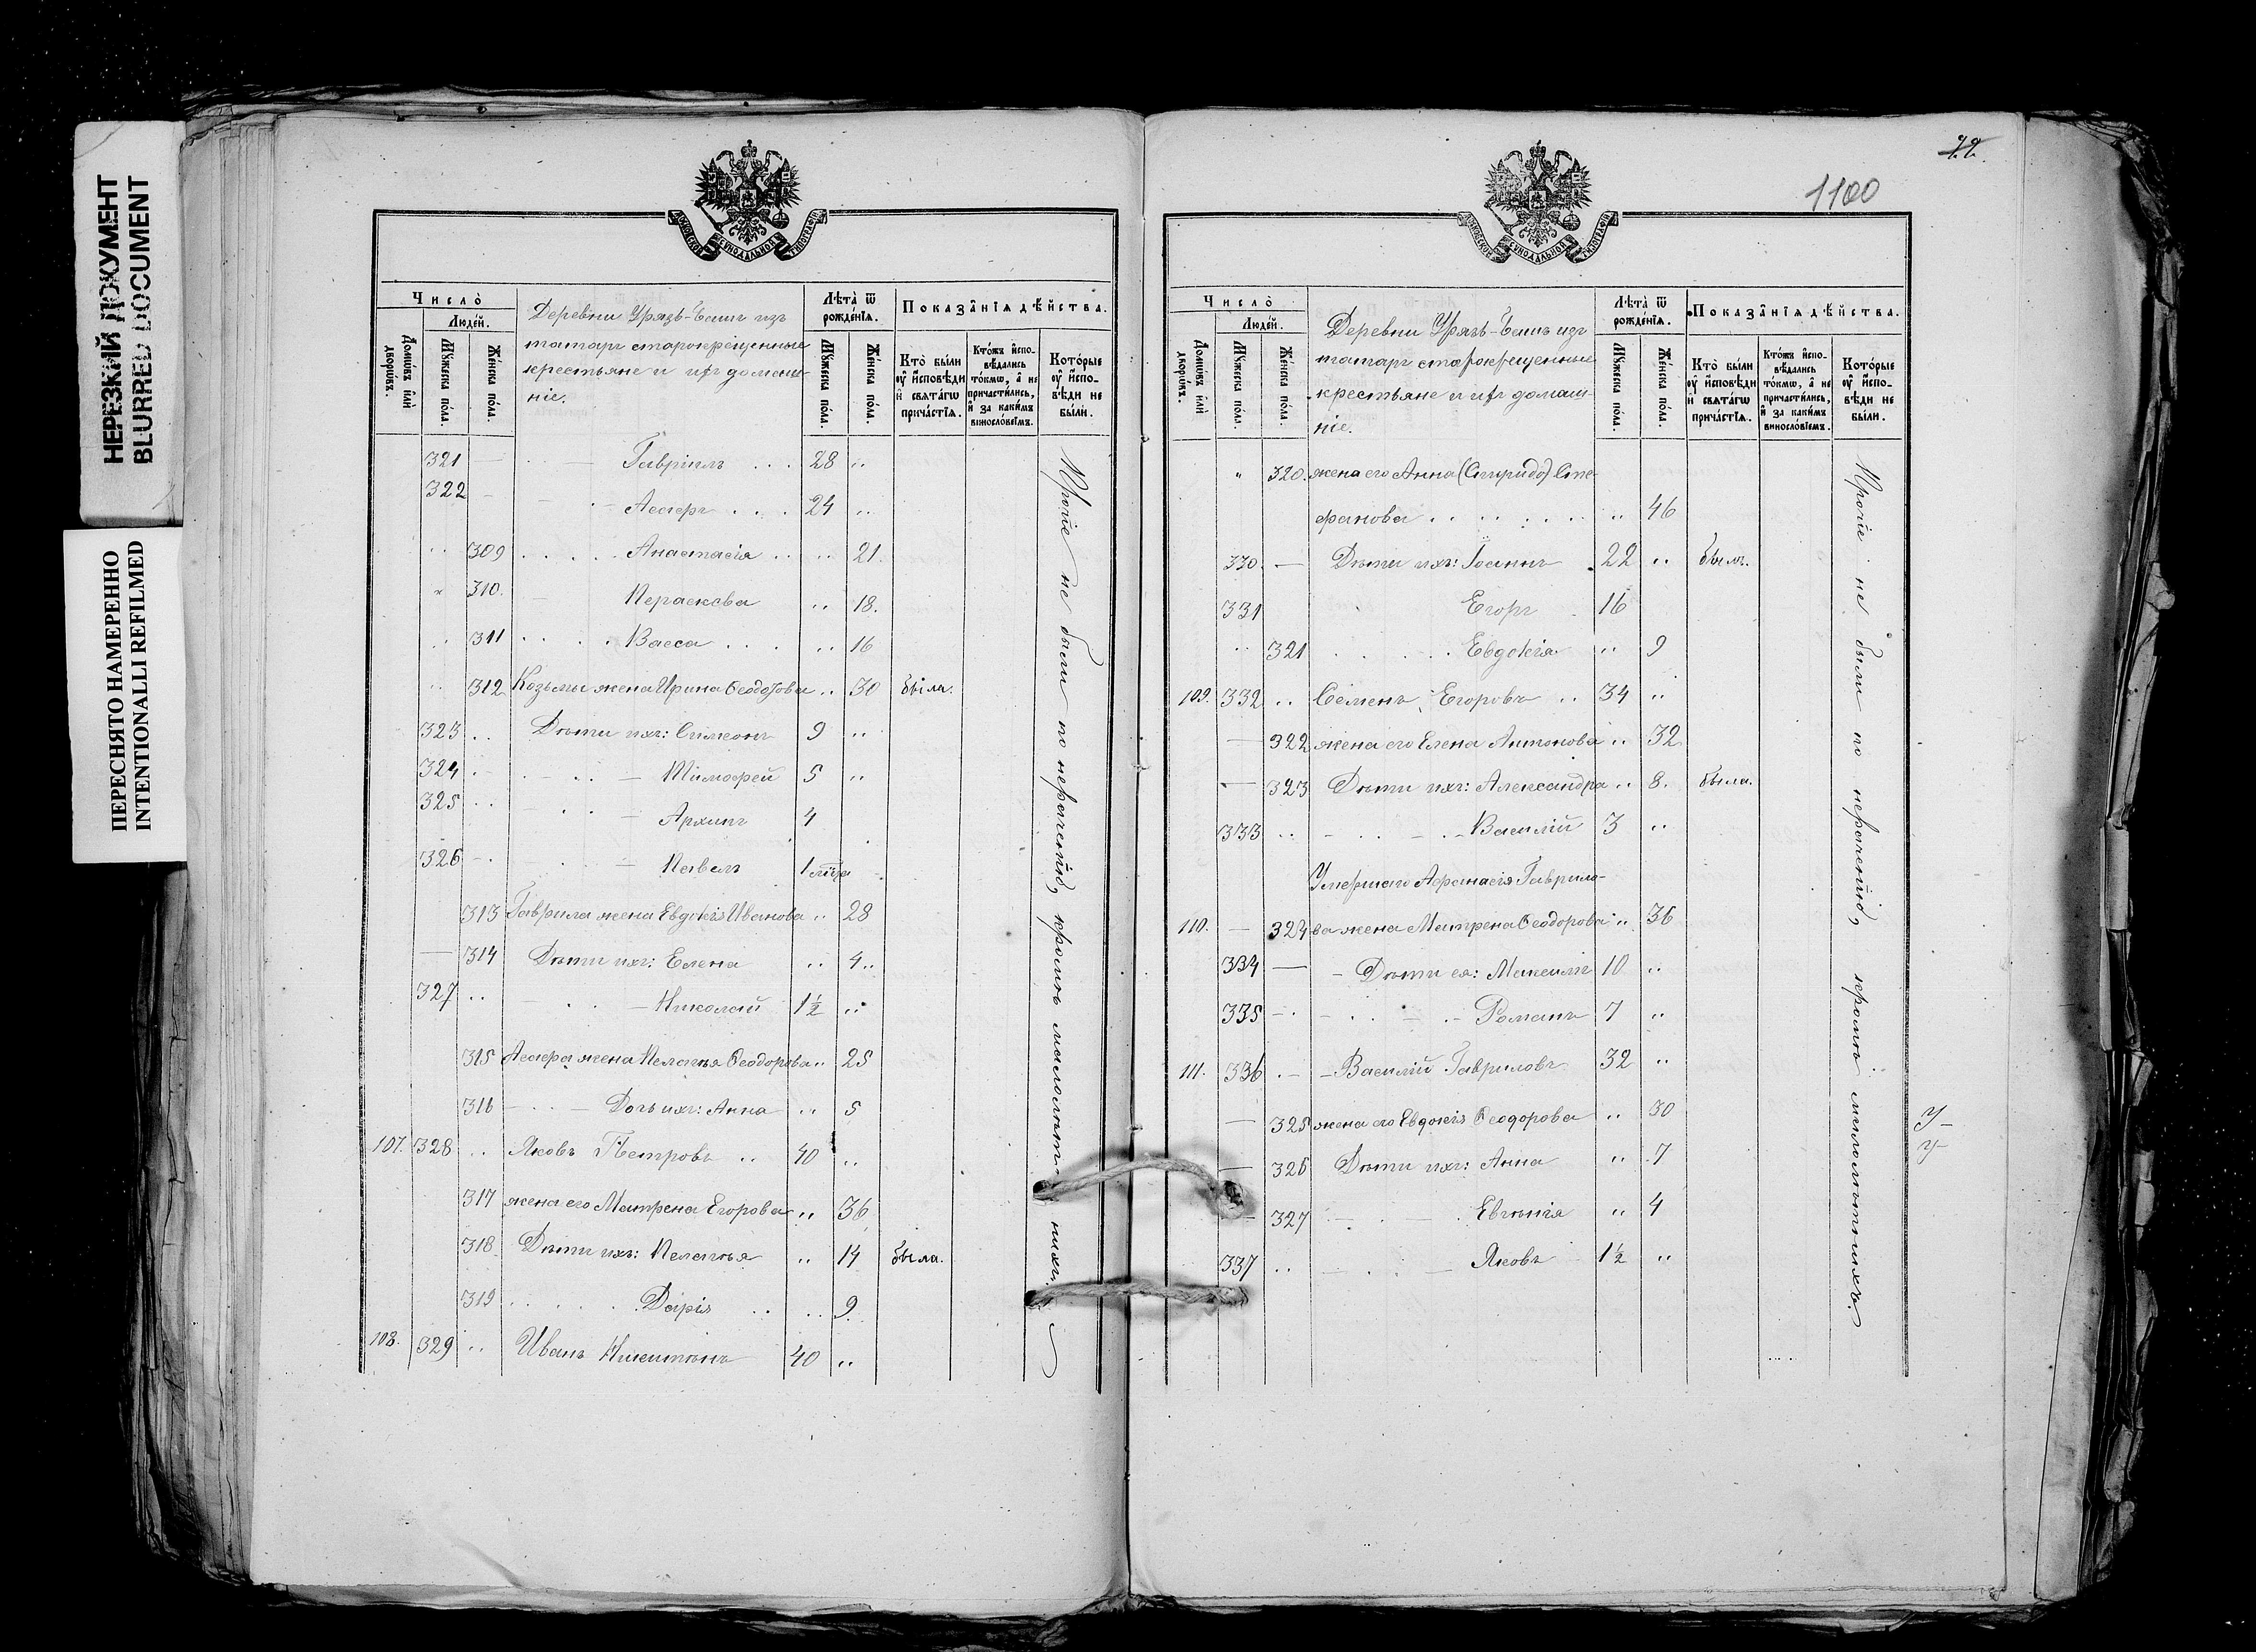 НЕРЕЗКИЙ ДОКУМЕНТ
BLURRED DOCUMENT
ПЕРЕСНЯТО НАМЕРЕННО
INTENTIONALLI REFILMED
Число̀
Людей.
Домѡвъ илѝ дворѡвъ.
Мꙋжеска пола.
Женска пола.
Деревни Урязь-Баши изъ
татаръ старокрещенные
крестьяне и ихъ домаш-
ніе.
Лѣта̀ ѿ рожденїѧ.
Мꙋжеска пола.
Женска пола.
Показанїѧ дѣйства.
Кто̀ были ᲂу҆ исповѣди и свѧтагѡ причастїѧ.
Ктожъ исповѣдались токмѡ, а не причастились, и за какимъ винословїемъ.
Которые ᲂу҆ исповѣди не были.
321 — Гавріилъ 28 "
322 — Ассиръ 24 "
" 309 Анастасія " 21.
" 310. Параскева " 18.
" 311 Васса " 16
" 312 Козьмы жена Ирина Ѳеодотова " 30 была.
323 " Дѣти ихъ: Симеонъ 9 "
324 — Тимофей 5 "
325 " Архипъ 4
326 — Павелъ 1
313 Гаврила жена Евдокія Иванова " 28
— 314 Дѣти ихъ: Елена " 4 "
327 " — Николай 1½ "
315 Ассира жена Пелагія Ѳеодорова " 25
316 — Дочь ихъ: Анна " 5
107. 328 " Яковъ Петровъ 40 "
317 жена его Матрена Егорова " 36
318 Дѣти ихъ: Пелагія " 14 была.
319 Дарія " 9.
108. 329 " Иванъ Никитинъ 40 "
Прочіе не были по нераченію, кромѣ малолѣтнихъ.
42.
1100
Число̀
Людей.
Домѡвъ илѝ дворѡвъ.
Мꙋжеска пола.
Женска пола.
Деревни Урязь-Баши изъ
татаръ старокрещенные
крестьяне и ихъ домаш-
ніе.
Лѣта̀ ѿ рожденїѧ.
Мꙋжеска пола.
Женска пола.
Показанїѧ дѣйства.
Кто̀ были ᲂу҆ исповѣди и свѧтагѡ причастїѧ.
Ктожъ исповѣдались токмѡ, а не причастились, и за какимъ винословїемъ.
Которые ᲂу҆ исповѣди не были.
" 320. жена его Анна (Спиридо) Сте-
фанова " 46
330. — Дѣти ихъ: Іоаннъ 22 " былъ.
331 Егоръ 16
" 321 Евдокія " 9
109. 332 " Семенъ Егоровъ 34 "
— 322 жена его Елена Антонова " 32
— 323 Дѣти ихъ: Александра " 8. была.
333 " — Василій 3 "
Умершаго Аѳанасія Гаврило-
110. — 324 ва жена Матрена Ѳеодорова " 36
334 — Дѣти ея: Максимъ 10 "
335 — Романъ 7 "
111. 336 — Василій Гавриловъ 32 "
— 325 жена его Евдокія Ѳеодорова " 30
— 326 Дѣти ихъ: Анна " 7
— 327 — Евгенія " 4
337 " — Яковъ 1½ "
Прочіе не были по нераченію, кромѣ малолѣтнихъ.